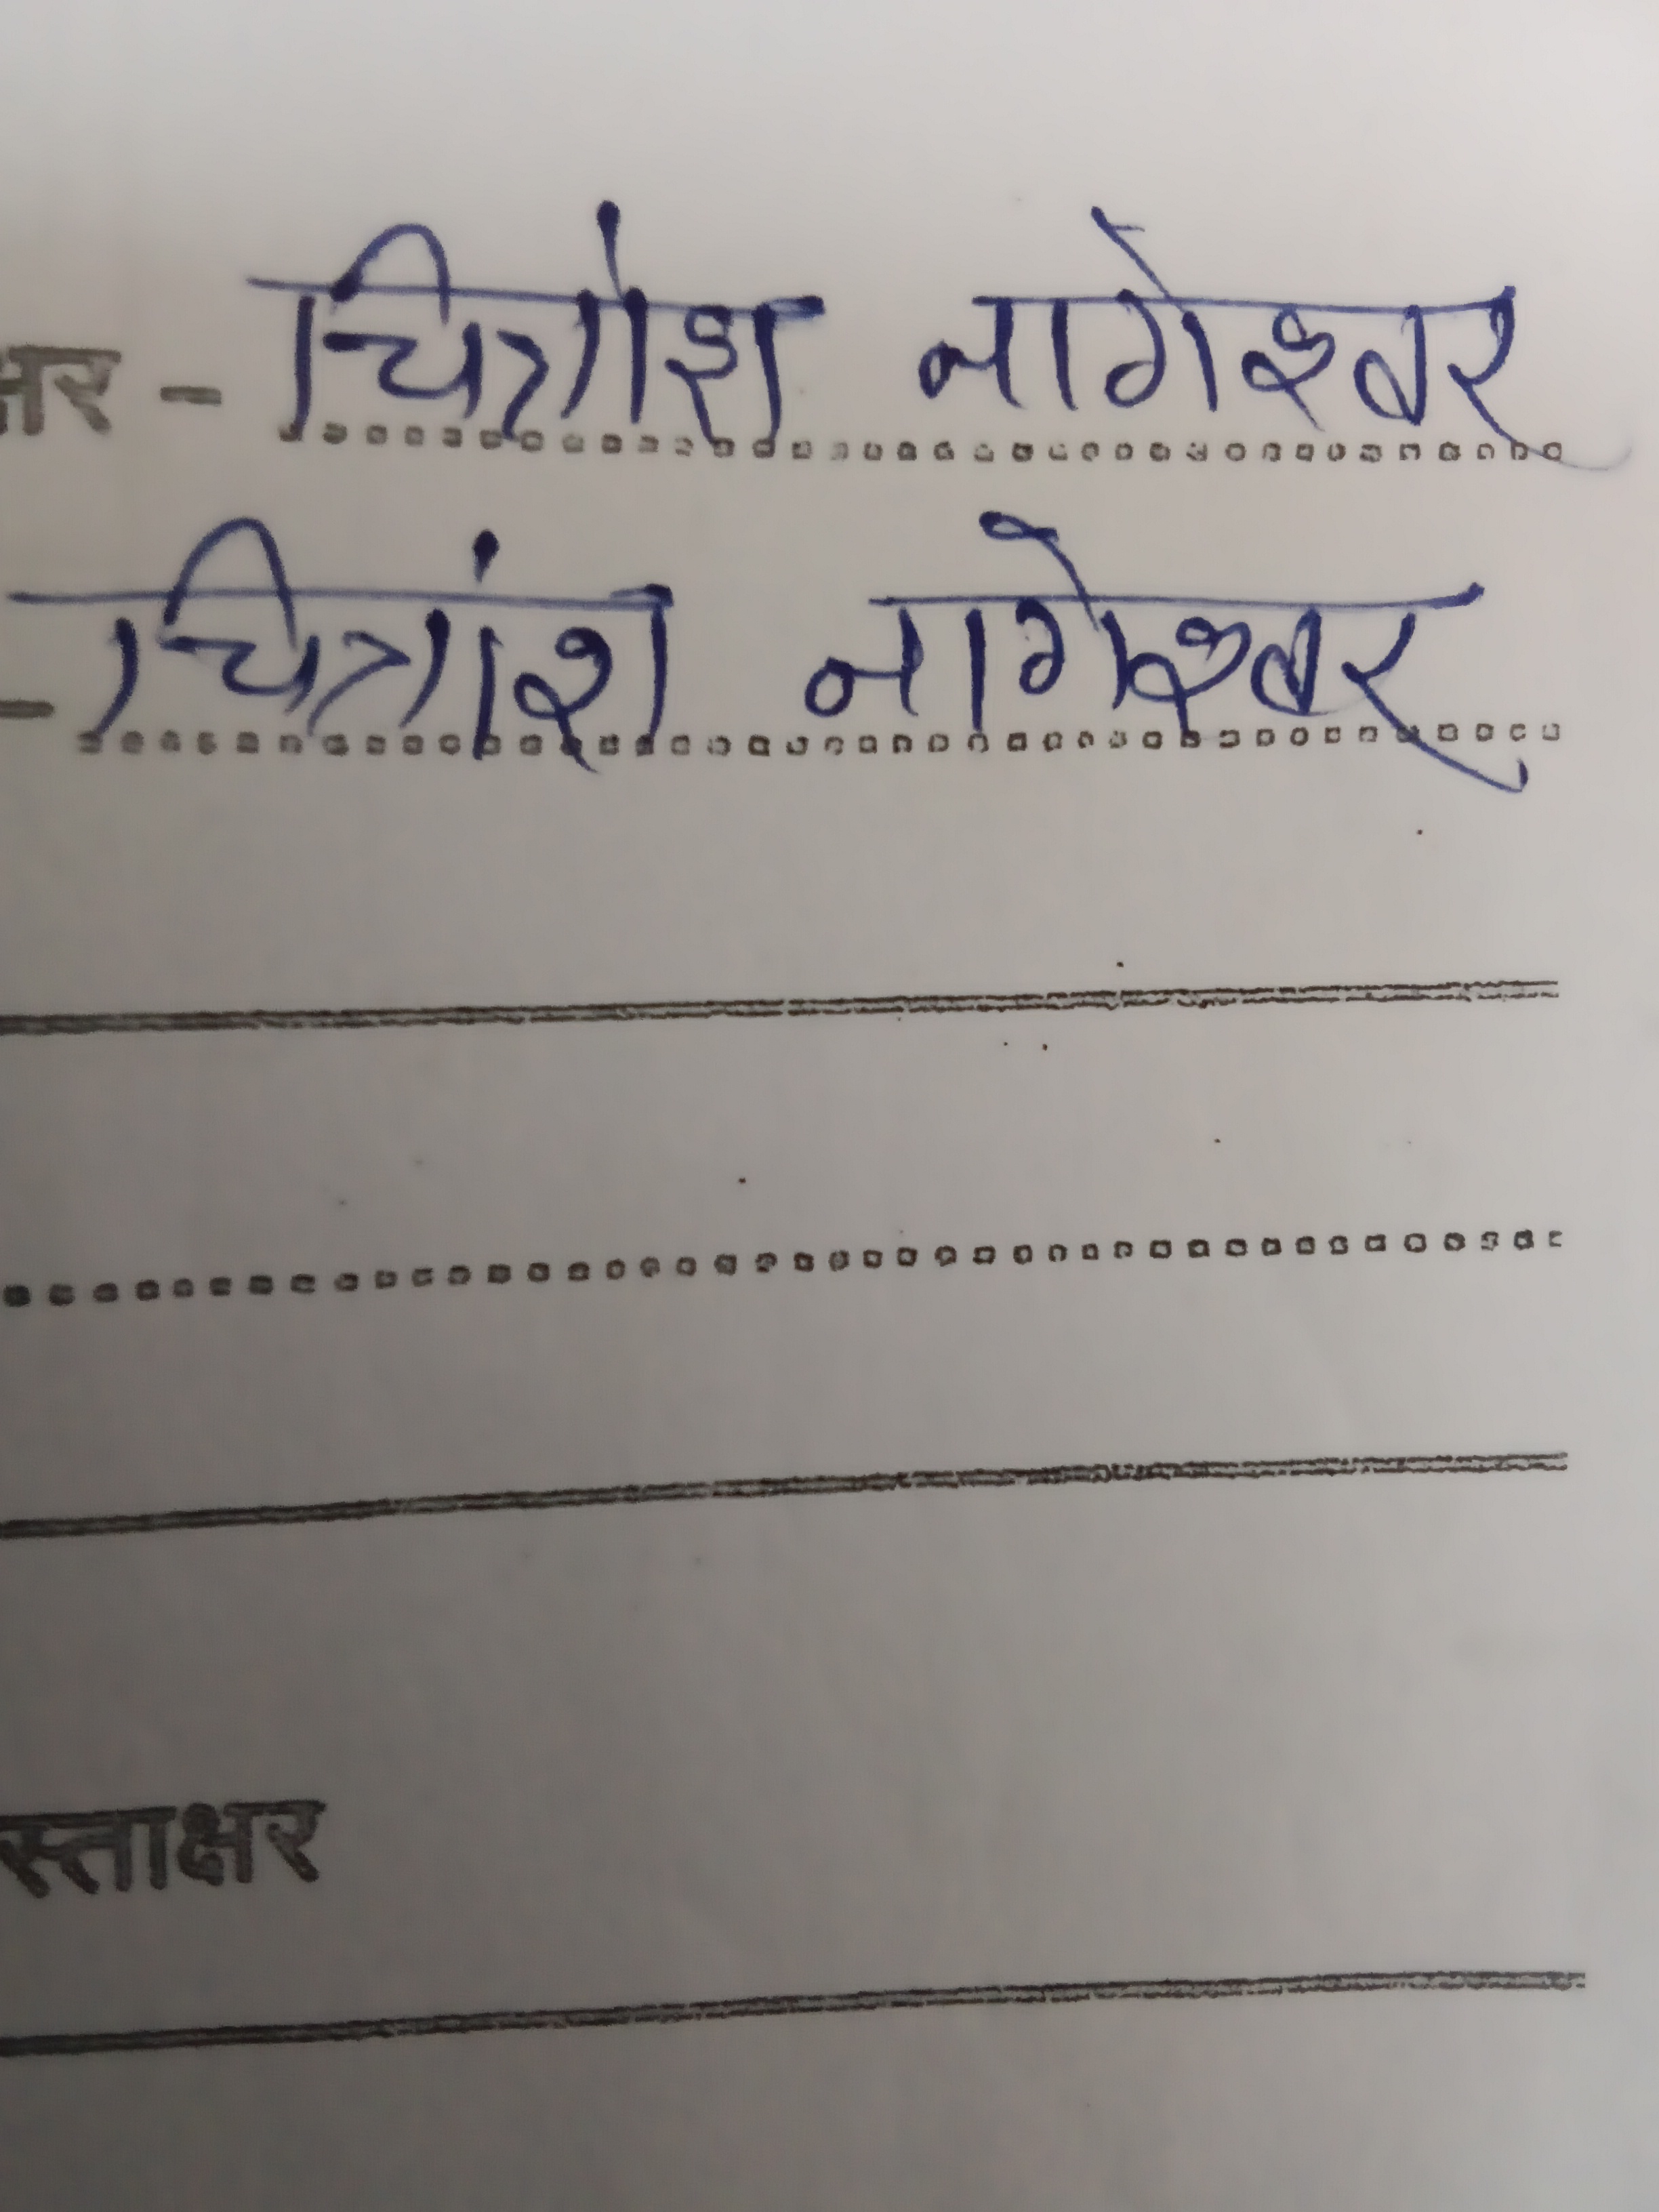 क्षर - चित्रांश नागेश्वर
- चित्रांश नागेश्वर
स्ताक्षर